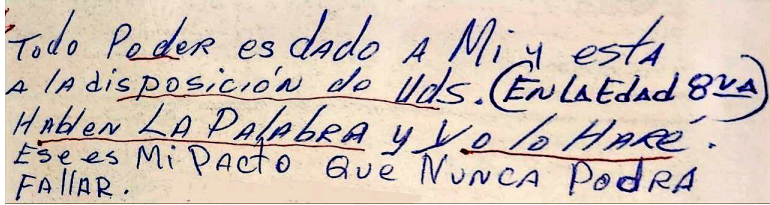 Todo Poder es dado A Mi y estA
A lA disposición de Uds. (EN LA EdAd 8vA)
HAblen LA PAlAbRA y Yo lo HARé.
Ese es Mi PActo Que NuNCA PodRA
FAllAR.